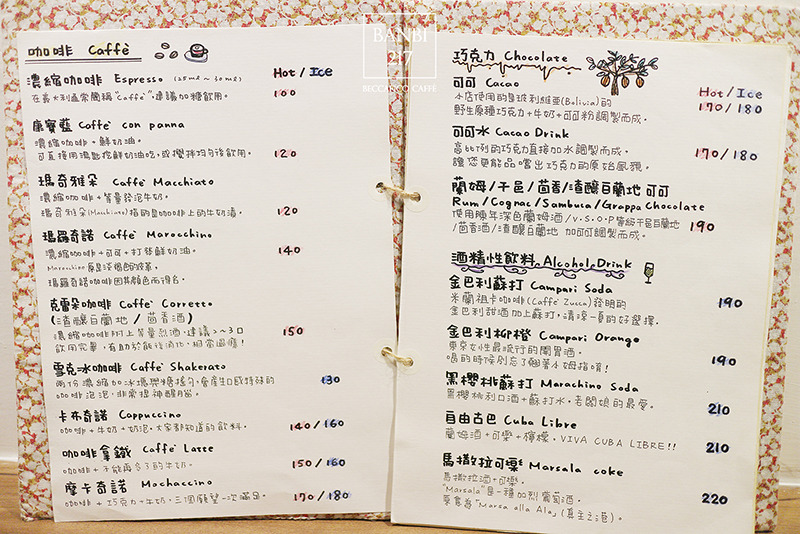 BANBI
217
BECCAFICO CAFFÈ
咖啡 Caffè
Hot / Ice
濃縮咖啡 Espresso (25ml ~ 30ml)
在義大利通常簡稱"Caffè",建議加糖飲用。
100
康寶藍 Caffè con panna
濃縮咖啡 + 鮮奶油。
可直接用湯匙挖鮮奶油吃,或攪拌均勻後飲用。
120
瑪奇雅朵 Caffè Macchiato
濃縮咖啡 + 等量發泡牛奶。
瑪奇雅朵(Macchiato)指的是咖啡上的牛奶漬。
120
瑪羅奇諾 Caffè Marocchino
濃縮咖啡 + 可可 + 打發鮮奶油。
Marocchino 原是淺褐色的皮革。
瑪羅奇諾咖啡因其顏色而得名。
140
克雷朵咖啡 Caffè Corretto
(渣釀白蘭地 / 茴香酒)
濃縮咖啡附上等量烈酒,建議2~3口
飲用完畢,有助於飯後消化,相當過癮!
150
雪克冰咖啡 Caffè Shakerato
兩份濃縮加冰塊與糖搖勻,會產生口感特殊的
咖啡泡泡,非常提神醒腦。
130
卡布奇諾 Cappuccino
咖啡 + 牛奶 + 奶泡,大家都知道的飲料。
140 / 160
咖啡拿鐵 Caffè Latte
咖啡 + 不能再多了的牛奶。
150 / 160
摩卡奇諾 Mochaccino
咖啡 + 巧克力 + 牛奶,三個願望一次滿足。
170 / 180
巧克力 Chocolate
Hot / Ice
可可 Cacao
小店使用的是玻利維亞(Bolivia)的
野生原種巧克力 + 牛奶 + 可可粉調製而成。
170 / 180
可可水 Cacao Drink
高比例的巧克力直接加水調製而成。
讓您更能品嚐出巧克力的原始風貌。
170 / 180
蘭姆/干邑/茴香/渣釀白蘭地 可可
Rum / Cognac / Sambuca / Grappa Chocolate
使用陳年深色蘭姆酒 / V.S.O.P 等級干邑白蘭地
/ 茴香酒 / 渣釀白蘭地 加可可調製而成。
190
酒精性飲料 Alcohol Drink
金巴利蘇打 Campari Soda
米蘭祖卡咖啡(Caffè Zucca)發明的
金巴利甜酒加上蘇打,清涼一夏的好選擇。
190
金巴利柳橙 Campari Orange
東京女性最流行的開胃酒。
喝的時候別忘了翹著小姆指唷!
190
黑櫻桃蘇打 Marachino Soda
黑櫻桃利口酒 + 蘇打水,老闆娘的最愛。
210
自由古巴 Cuba Libre
蘭姆酒 + 可樂 + 檸檬。VIVA CUBA LIBRE!!
210
馬撒拉可樂 Marsala coke
馬撒拉酒 + 可樂。
"Marsala"是一種加烈葡萄酒。
原意為 "Marsa alla Ala"(真主之港)。
220